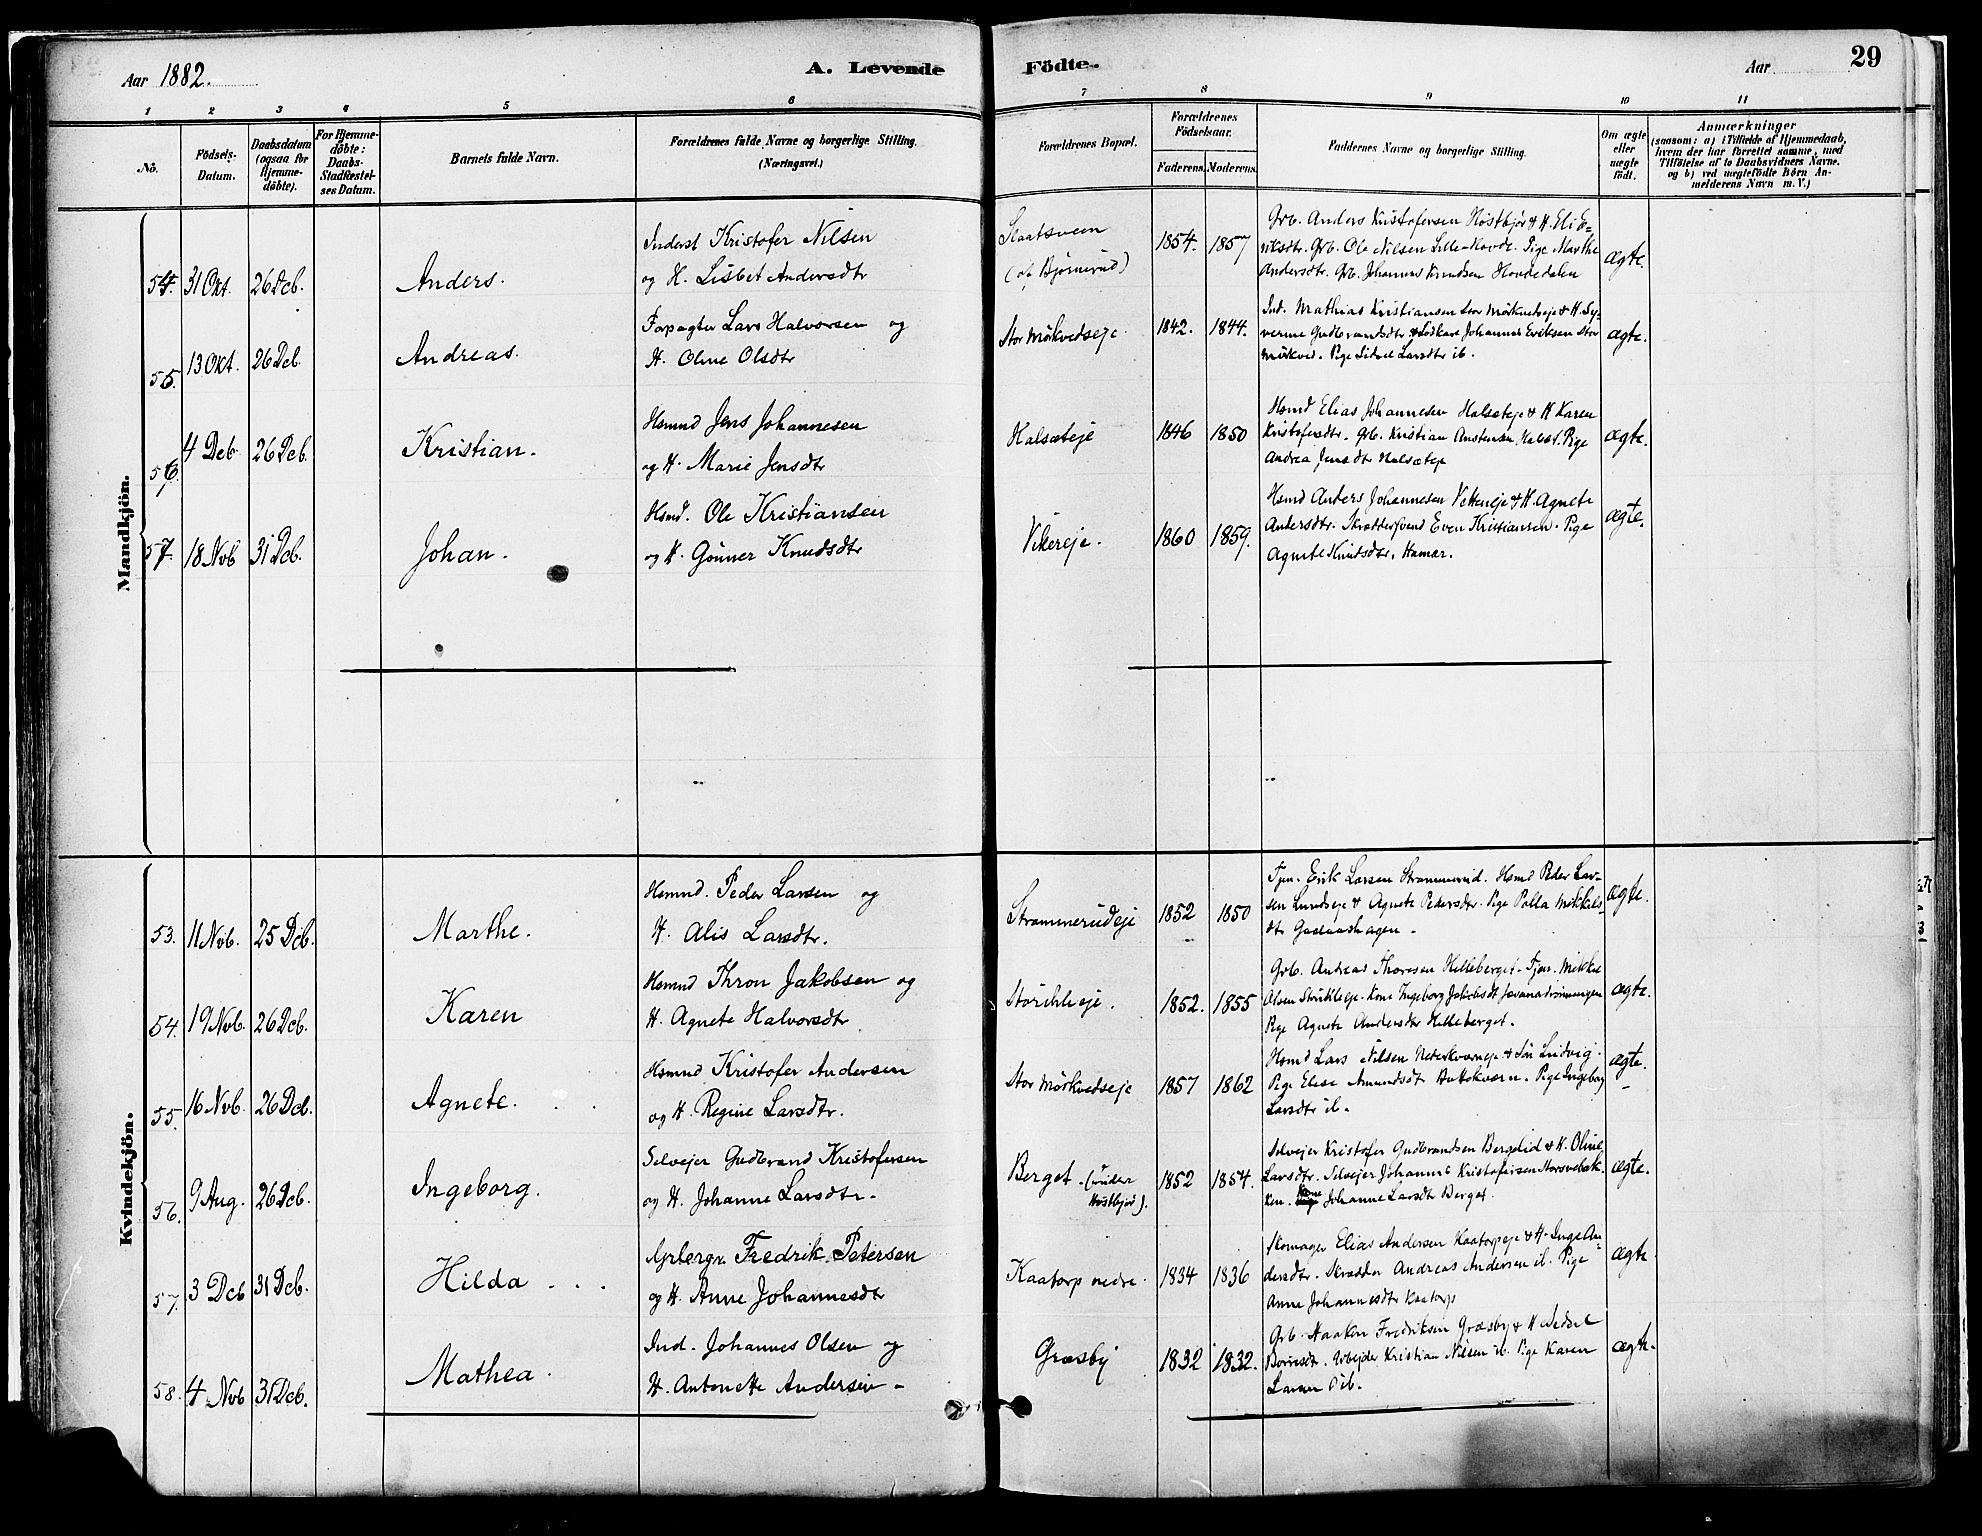 Aar 1882.
A. Levende
Födte.
Aar
29
1 2 3 4 5 6 7 8 9 10 11
No.
Födsels-
Datum.
Daabsdatum
(ogsaa for
Hjemme-
döbte).
For Hjemme-
döbte:
Daabs-
Stadfæstel-
ses Datum.
Barnets fulde Navn.
Forældrenes fulde Navne og borgerlige Stilling.
(Næringsvei.)
Forældrenes Bopæl.
Forældrenes
Födselsaar.
Faderens. Moderens.
Faddernes Navne og borgerlige Stilling.
Om ægte
eller
uægte
födt.
Anmærkninger
(saasom: a) i Tilfælde af Hjemmedaab,
hvem der har forrettet samme, med
Tilföielse af to Daabsvidners Navne.
og b) ved uægtefödte Börn An-
melderens Navn m. V.)
Mandkjön.
54. 31 Okt. 26 Dcb. Anders.
Inderst Kristofer Nilsen
og H. Lisbet Andersdtr
Slaatsveen
(af Bjørnerud)
1854. 1857
Grb. Anders Kristofersen Høstbjør & H. Eli E-
riksdtr. Grb. Ole Nilsen Lille-Hovde. Pige Marthe
Andersdtr. Grb. Johannes Knudsen Hovdedalen
ægte.
55. 13 Okt. 26 Dcb. Andreas.
Forpagter Lars Halvorsen og
H. Oline Olsdtr
Stor Mörkvedseje.
1842. 1844.
Ind. Mathias Kristiansen Stor Mörkvedseje & H. Sy-
verine Gudbrandsdtr & Ledkarl Johannes Eriksen Stor
mörkved. Pige Sidsel Larsdtr ib.
ægte.
56. 4 Dcb. 26 Dcb. Kristian.
Hsmnd Jens Johannesen
og H. Marie Jensdtr
Halsæteje
1846 1850
Hsmd Elias Johannesen Halsæteje & H Karen
Kristofersdtr. Grb. Kristian Anstensen Halset. Pige
Andrea Jensdtr Halsæteje
ægte.
57. 18 Nvb 31 Dcb. Johan.
Hsmd. Ole Kristiansen
og H. Gønner Knudsdtr
Vikereje.
1860 1859.
Hsmd Anders Johannesen Vetteneje & H. Agnete
Andersdtr. Skrædersvend Even Kristiansen. Pige
Agnete Knudsdtr, Hamar.
ægte.
Kvindekjön.
53. 11 Nvb. 25 Dcb. Marthe.
Hsmnd. Peder Larsen og
H. Alis Larsdtr.
Strammerudeje
1852 1850
Tjen. Erik Larsen Strammerud. Hsmd Peder Lar-
sen Lundseje & Agnete Pedersdtr. Pige Polla Mikkels-
dtr Gaalaashagen.
ægte.
54. 19 Nvb. 26 Dcb. Karen
Hsmnd Thron Jakobsen og
H. Agnete Halvorsdtr
Storihleeje.
1852. 1855
Grb. Andreas Thoresen Helleberget. Tjen. Mikkel
Olsen Storihleeje. Kone Ingeborg Jakobsdt
Pige Agnete Andersdtr Helleberget.
ægte.
55. 16 Nvb. 26 Dcb. Agnete.
Hsmnd Kristofer Andersen
og H. Regine Larsdtr.
Stor Mörkvedseje
1857 1862
Hsmd Lars Nilsen Nederkværneje & Sön Ludvig.
Pige Elise Amundsdt Buttekværn. Pige Ingeborg
Larsdtr ib.
ægte.
56. 9 Aug. 26 Dcb. Ingeborg.
Selvejer Gudbrand Kristofersen
og H. Johanne Larsdtr.
Berget (under
Høstbjør).
1852 1854.
Selvejer Kristofer Gudbrandsen Bergelid & H. Oline
Larsdtr. Selvejer Johannes Kristofersen Storsvebak-
ken. Kone Johanne Larsdtr Berget.
ægte.
57. 3 Dcb 31 Dcb. Hilda
Grbrgr. Fredrik Petersen
og H. Anne Johannesdtr
Kaatorp nedre.
1834 1836
Skomager Elias Andersen Kaatorpeje & H. Inge An-
dersdtr. Skrædder Andreas Andersen ib. Pige
Anne Johannesdtr Kaatorp
ægte
58. 4 Nvb 31 Dcb. Mathea.
Ind. Johannes Olsen og
H. Antonette Andersen.
Græsby
1832 1832.
Grb. Haaken Fredriksen Græsby & H
Börresdt. Arbejder Kristian Nilsen ib. Pige Karen
Larsen ib.
ægte.